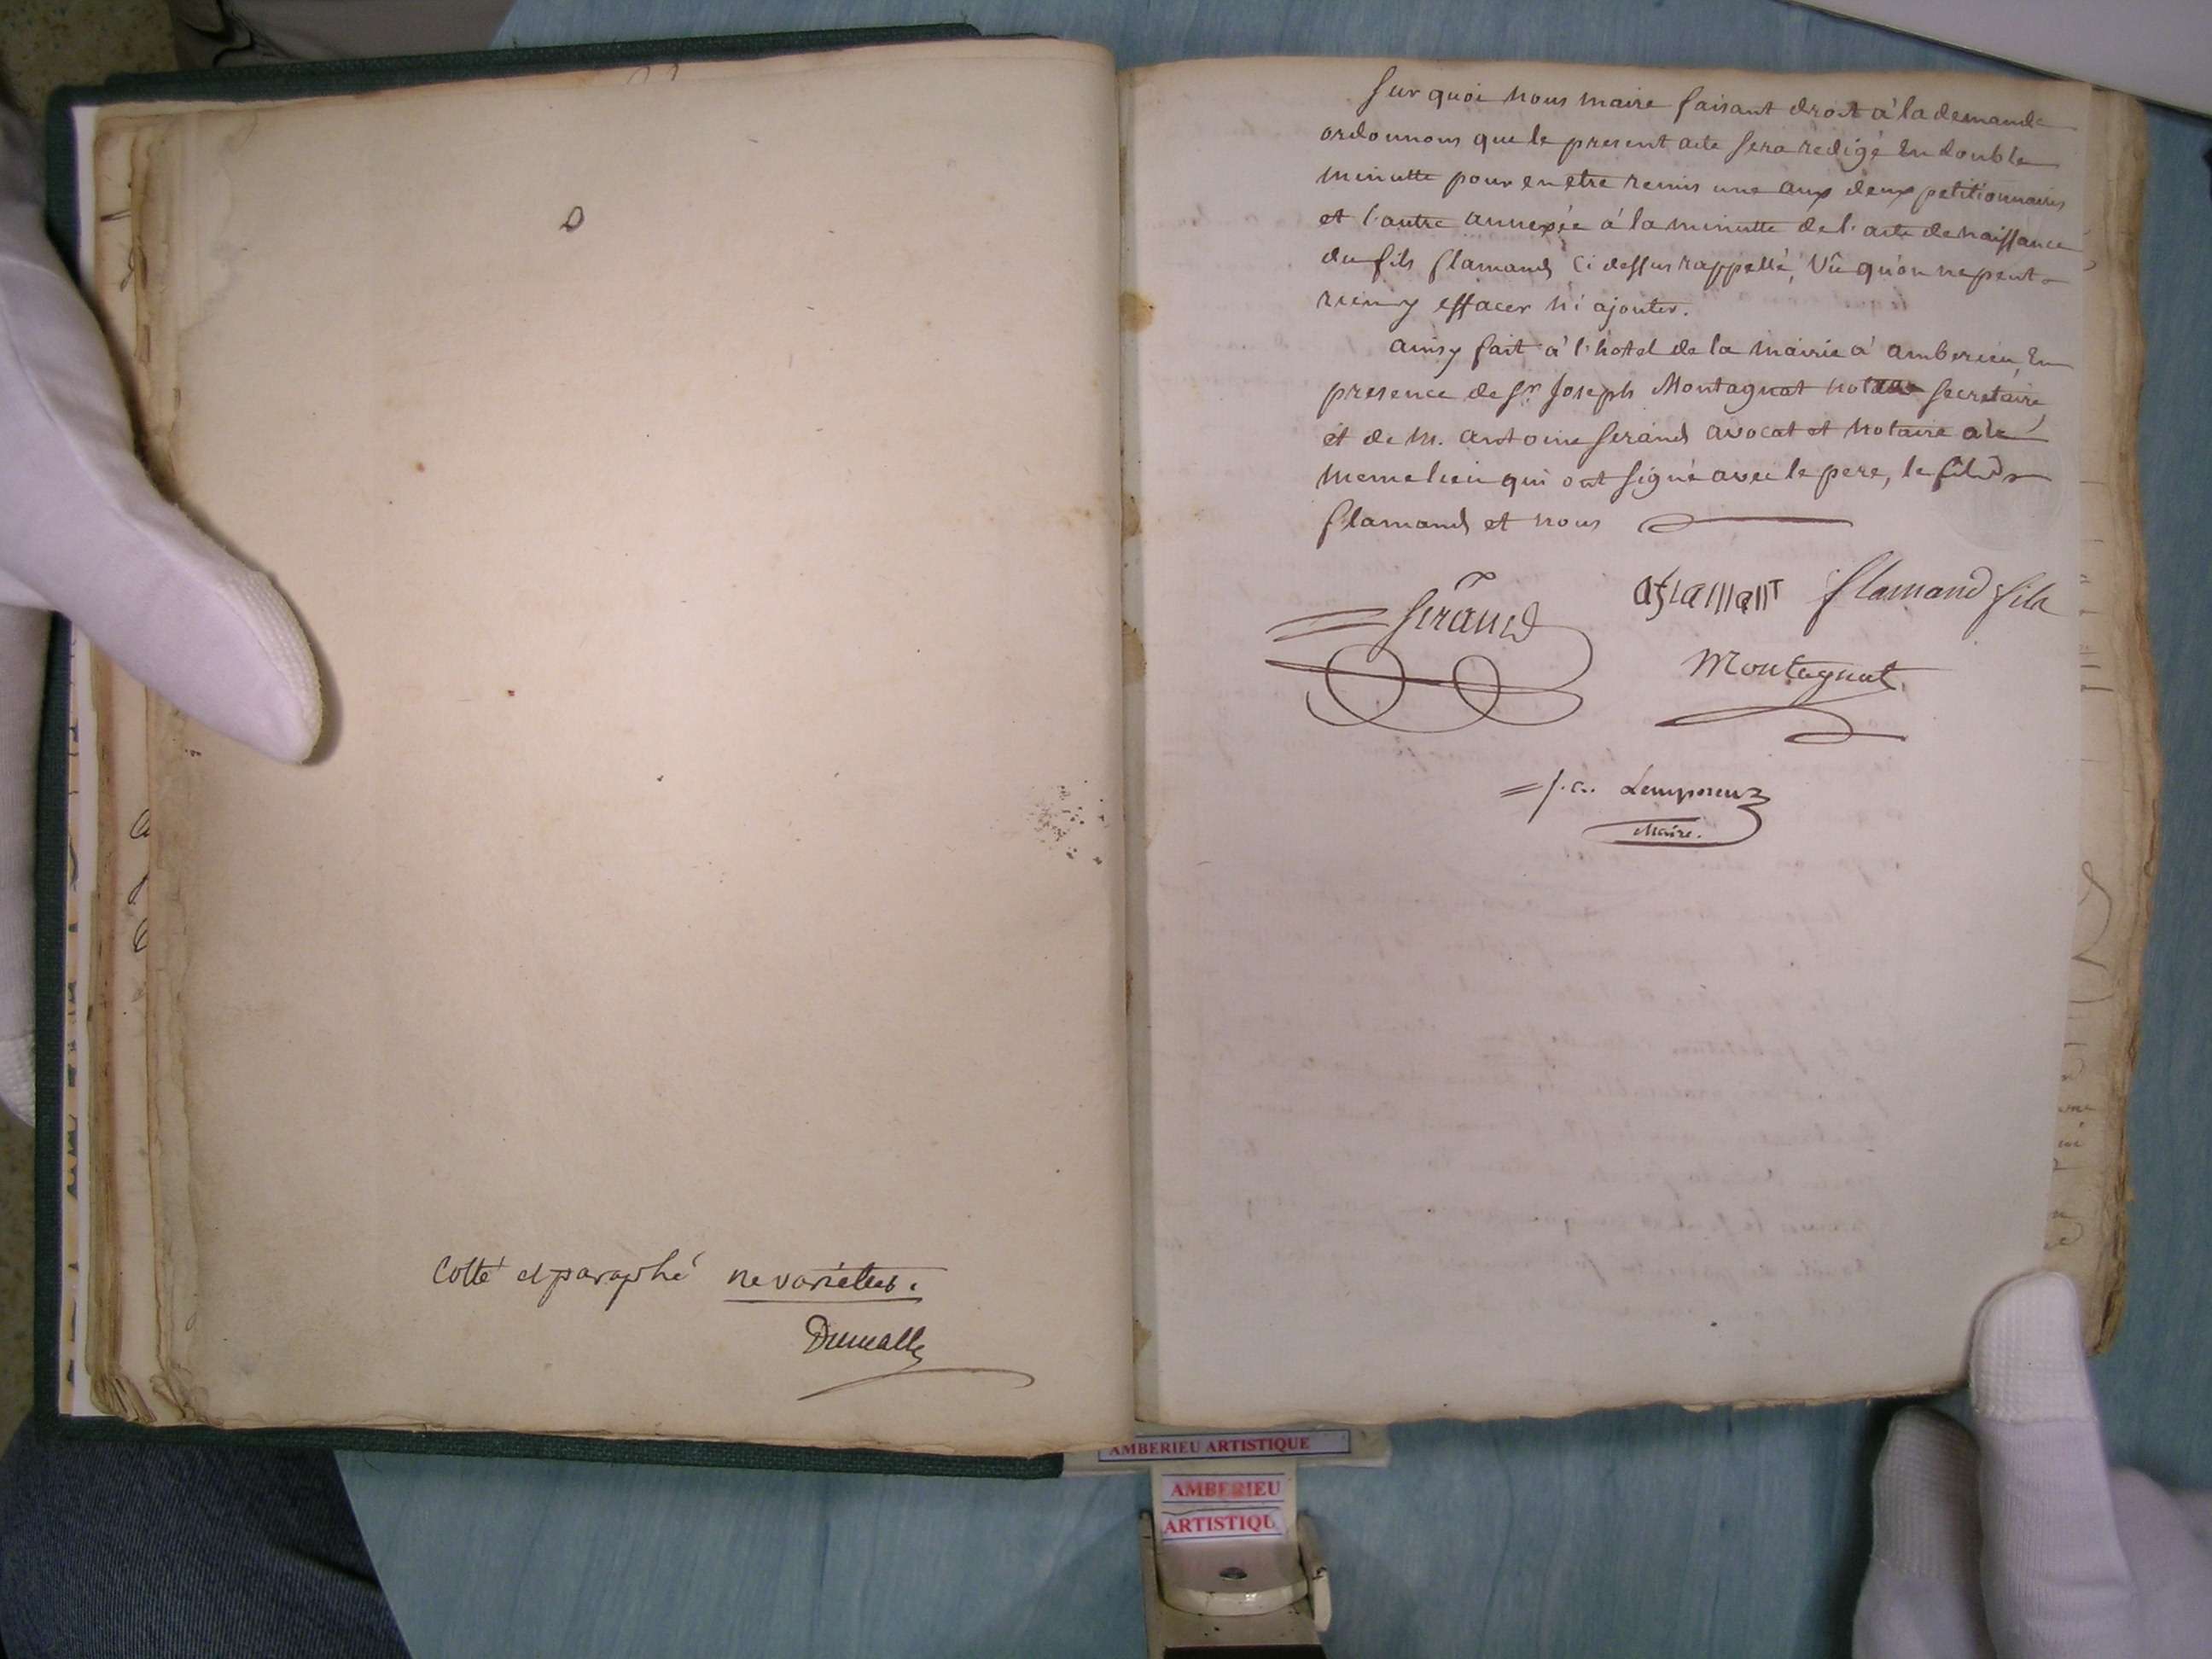 Cotté et paraphé ne varietur.
Sur quoi nous maire faisant droit à la demande
ordonnons que le present acte sera rédigé En double
minutte pour en etre remis une aux deux petitionnaires
et l'autre annexée à la minutte de l'acte de naissance
du fils flamand ci dessus rappellé, Vû qu'on ne peut
rien y effacer ni ajouter.
ainsy fait à l'hotel de la mairie à amberieu, En
presence de Sr. Joseph Montagnat secretaire
et de M. antoine Serand avocat et notaire
meme lieu qui ont signé avec le pere, le fils
flamand et nous
Serand
flamand fils
Montagnat
Maire.
AMBERIEU ARTISTIQUE
AMBERIEU
ARTISTIQU